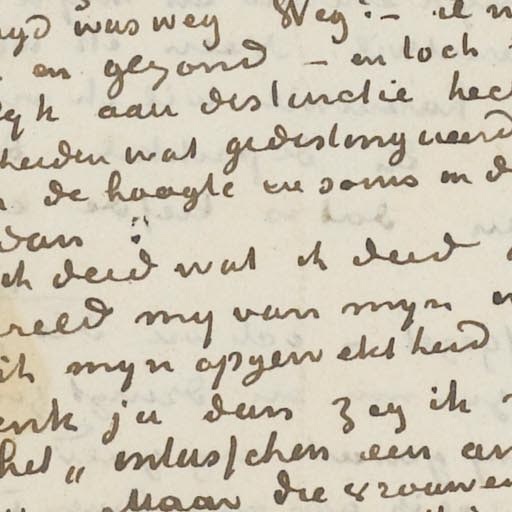 was weg Weg! –
en gezond – en toch
aan distinctie
wat gedistingueerd
de hoogte en soms in d
dan :
ik deed wat ik deed
my van myn
myn opgewektheid
ja dan zeg ik
het „ intusschen een
Maar die vrouwen